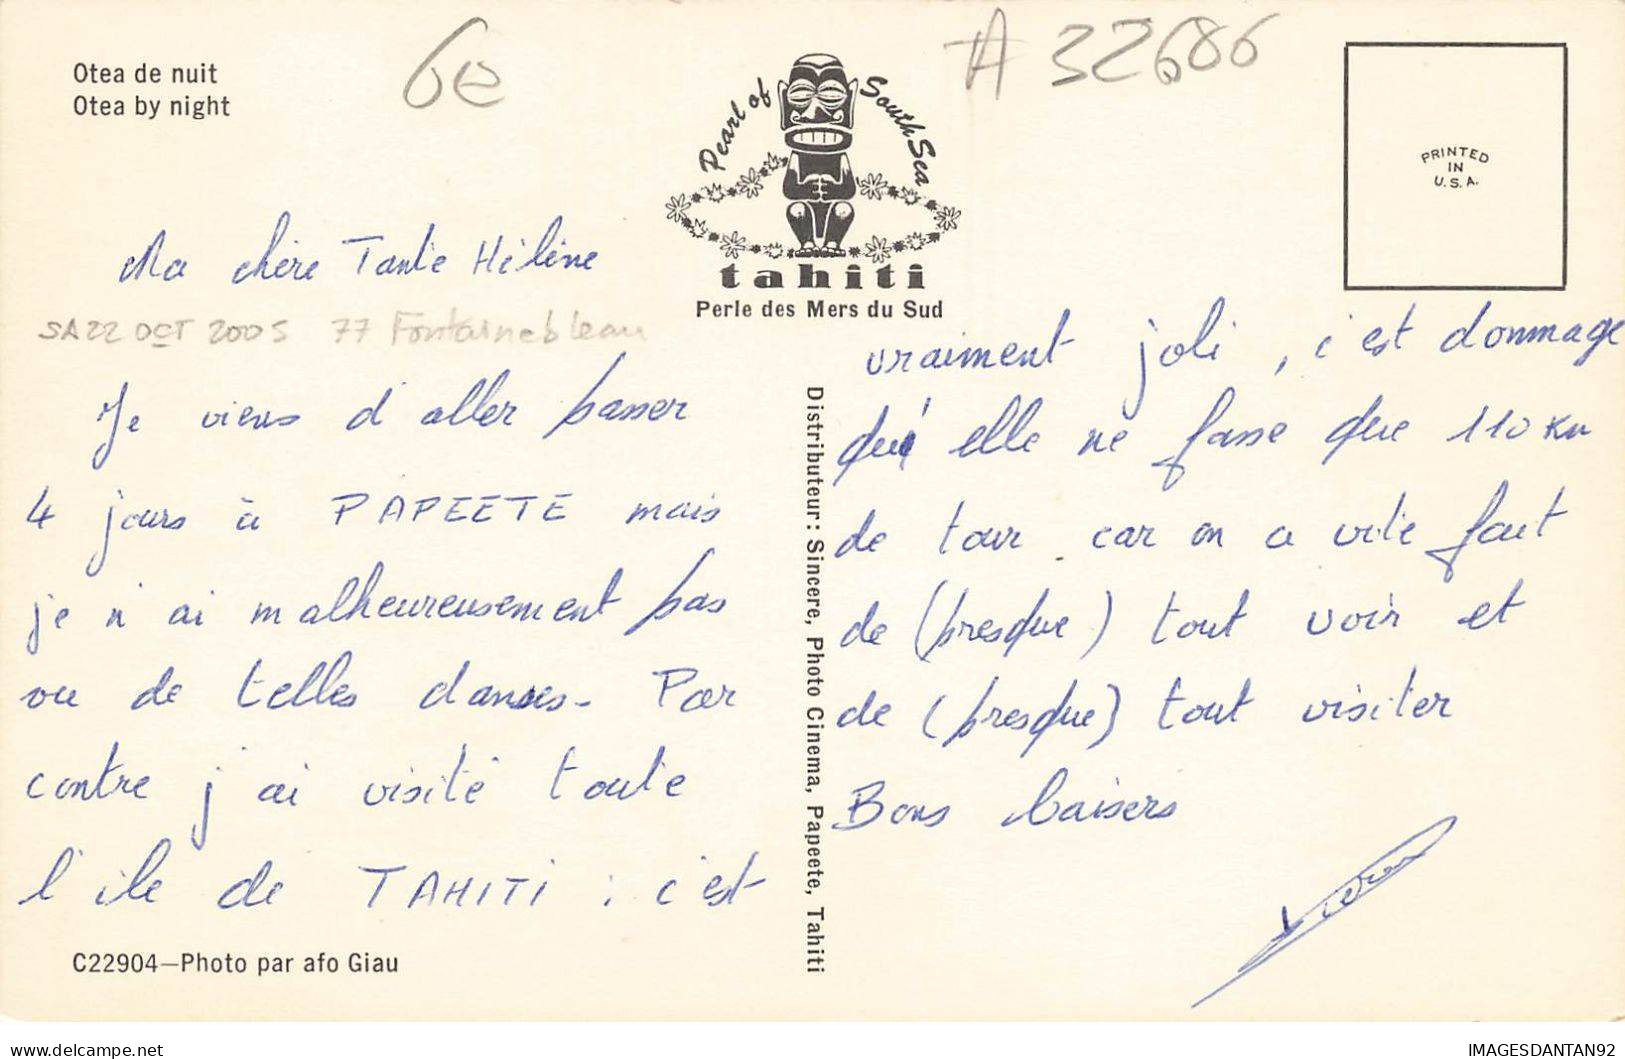 Otea de nuit
Otea by night
6e
A 32686
Pearl of South Sea
tahiti
Perle des Mers du Sud
PRINTED
IN
U.S.A.
Ma chère Tante Hélène
SA 22 OCT 2005 77 Fontainebleau
Je viens d'aller passer
4 jours à PAPEETE mais
je n'ai malheureusement pas
vu de telles danses. Par
contre j'ai visité toute
l'île de TAHITI : c'est
C22904—Photo par afo Giau
Distributeur: Sincere, Photo Cinema, Papeete, Tahiti
vraiment joli, c'est dommage
qu'elle ne fasse que 110 km
de tour car on a vite fait
de (presque) tout voir et
de (presque) tout visiter
Bons baisers
IMAGESDANTAN92
delcampe.net